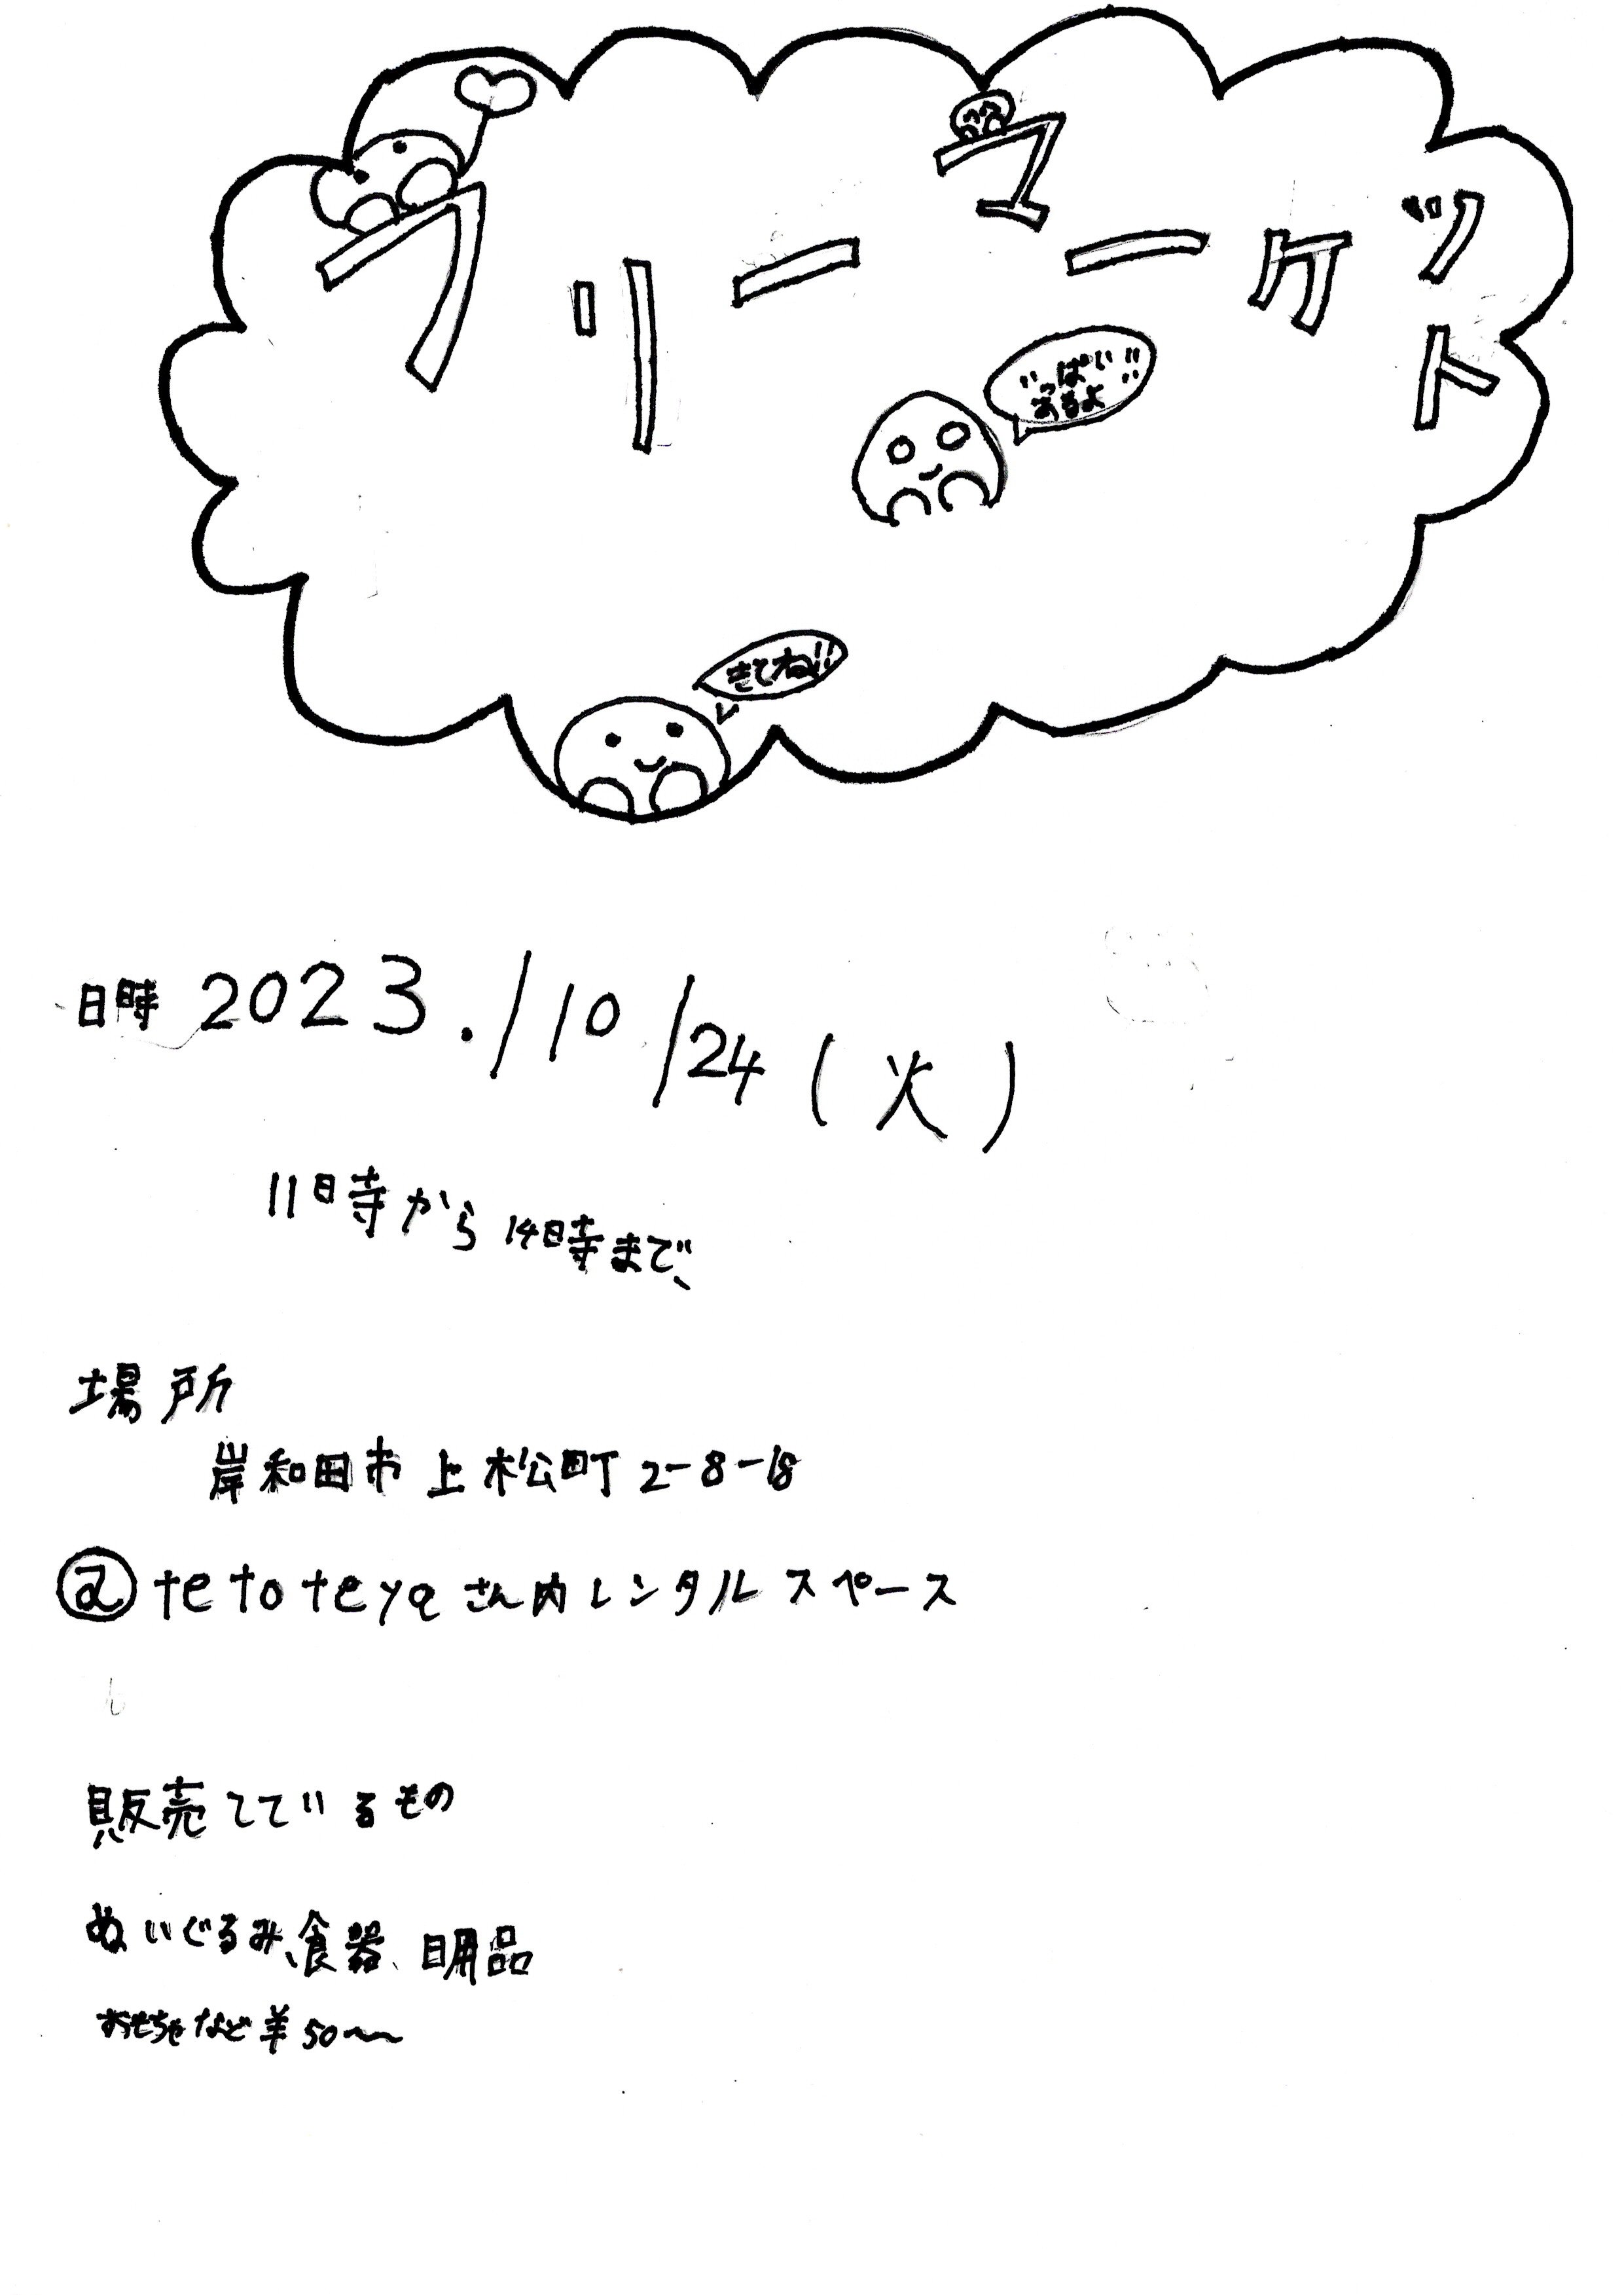 フリーマーケット
いっぱい!!
あるよ
きてね!!
日時 2023./10/24(火)
11時から14時まで、
場所
岸和田市上松町2-8-18
@tetoteyaさん内レンタルスペース
販売しているもの
ぬいぐるみ、食器、日用品
おもちゃなど¥50〜